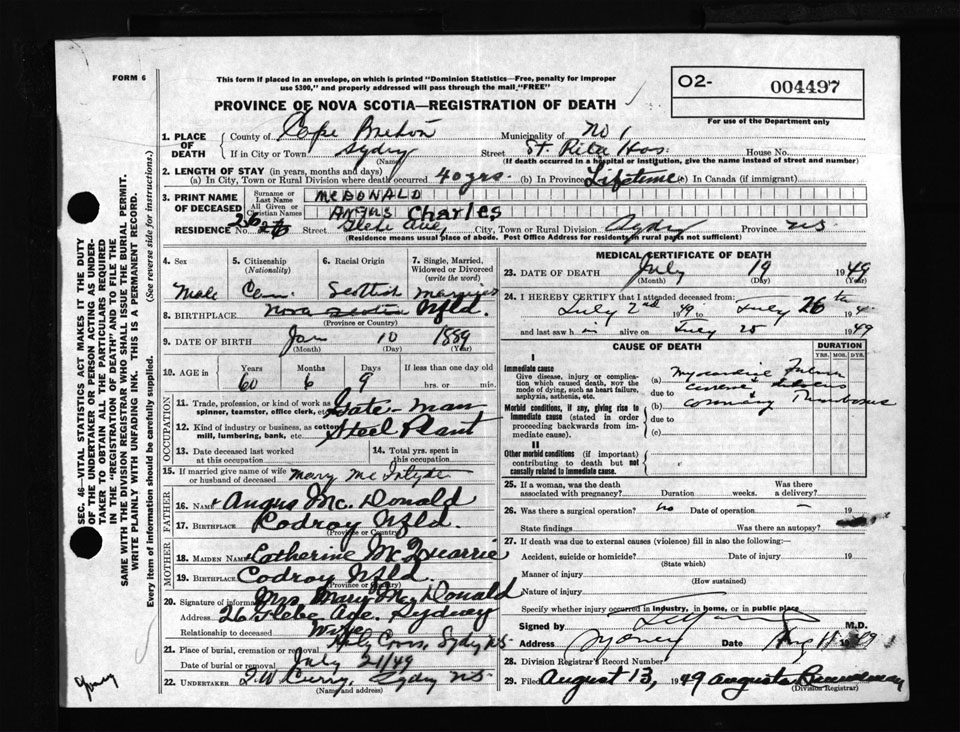 FORM 6
This form if placed in an envelope, on which is printed "Dominion Statistics—Free, penalty for improper
use $300," and properly addressed will pass through the mail "FREE"
O2- 004497
For use of the Department only
PROVINCE OF NOVA SCOTIA—REGISTRATION OF DEATH
1. PLACE OF DEATH County of Cape Breton Municipality of No 1
If in City or Town Sydney Street St. Rita Hos. House No.
(Name) (If death occurred in a hospital or institution, give the name instead of street and number)
2. LENGTH OF STAY (in years, months and days)
(a) In City, Town or Rural Division where death occurred 40 yrs. (b) In Province Lifetime (c) In Canada (if immigrant)
3. PRINT NAME OF DECEASED Surname or Last Name McDONALD
All Given or Christian Names ANGUS Charles
RESIDENCE No. 26 Street Glebe Ave, City, Town or Rural Division Sydney Province NS
(Residence means usual place of abode. Post Office Address for residents in rural parts not sufficient)
4. Sex Male
5. Citizenship (Nationality) Can.
6. Racial Origin Scottish
7. Single, Married, Widowed or Divorced (write the word) Married
8. BIRTHPLACE Nova Scotia Nfld.
(Province or Country)
9. DATE OF BIRTH Jan 10 1889
(Month) (Day) (Year)
10. AGE in Years 60 Months 6 Days 9 If less than one day old hrs. or min.
OCCUPATION
11. Trade, profession, or kind of work as spinner, teamster, office clerk, etc. Gate-man
12. Kind of industry or business, as cotton mill, lumbering, bank, etc. Steel Plant
13. Date deceased last worked at this occupation
14. Total yrs. spent in this occupation
15. If married give name of wife or husband of deceased Mary
FATHER
16. NAME Angus Mc Donald
17. BIRTHPLACE Codroy Nfld.
(Province or Country)
MOTHER
18. MAIDEN NAME Catherine McQuarrie
19. BIRTHPLACE Codroy Nfld.
(Province or Country)
20. Signature of informant Mrs Mary McDonald
Address 26 Glebe Ave. Sydney
Relationship to deceased Wife
21. Place of burial, cremation or removal Holy Cross, Sydney NS
Date of burial or removal July 21/49
22. UNDERTAKER T.W Curry, Sydney NS
(Name and address)
MEDICAL CERTIFICATE OF DEATH
23. DATE OF DEATH July 19 1949
(Month) (Day)
24. I HEREBY CERTIFY that I attended deceased from:
July 2nd 1949 to July 26th 194
and last saw h im alive on July 25 1949
CAUSE OF DEATH DURATION
YRS. MOS. DYS.
I
Immediate cause
Give disease, injury or complication which caused death, NOT the mode of dying, such as heart failure, asphyxia, asthenia, etc.
(a) Myocardial Failure
due to
Morbid conditions, if any, giving rise to immediate cause (stated in order proceeding backwards from immediate cause).
(b) coronary Thrombosis
due to
(c)
II
Other morbid conditions (if important) contributing to death but not causally related to immediate cause.
25. If a woman, was the death associated with pregnancy? Duration weeks. Was there a delivery?
26. Was there a surgical operation? no Date of operation — 19
State findings Was there an autopsy?
27. If death was due to external causes (violence) fill in also the following:—
Accident, suicide or homicide? Date of injury 19
(State which)
Manner of injury
(How sustained)
Nature of injury
Specify whether injury occurred in industry, in home, or in public place
Signed by M.D.
Address Sydney Date Aug 11 1949
28. Division Registrar's Record Number
29. Filed August 13, 1949 Augusta
(Division Registrar)
SEC. 46—VITAL STATISTICS ACT MAKES IT THE DUTY
OF THE UNDERTAKER OR PERSON ACTING AS UNDER-
TAKER TO OBTAIN ALL THE PARTICULARS REQUIRED
IN THE "REGISTRATION OF DEATH" AND TO FILE THE
SAME WITH THE DIVISION REGISTRAR WHO SHALL ISSUE THE BURIAL PERMIT.
WRITE PLAINLY WITH UNFADING INK. THIS IS A PERMANENT RECORD.
Every item of information should be carefully supplied. (See reverse side for instructions.)